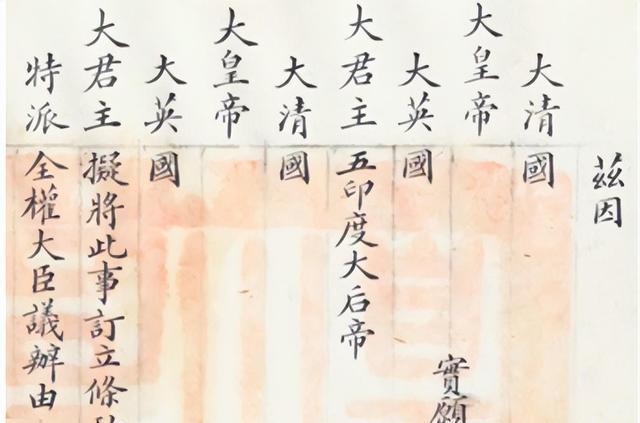 茲因
大清國
大皇帝 實願
大英國
大君主五印度大后帝
大清國
大皇帝
大英國
大君主擬將此事訂立條
特派全權大臣議辦由